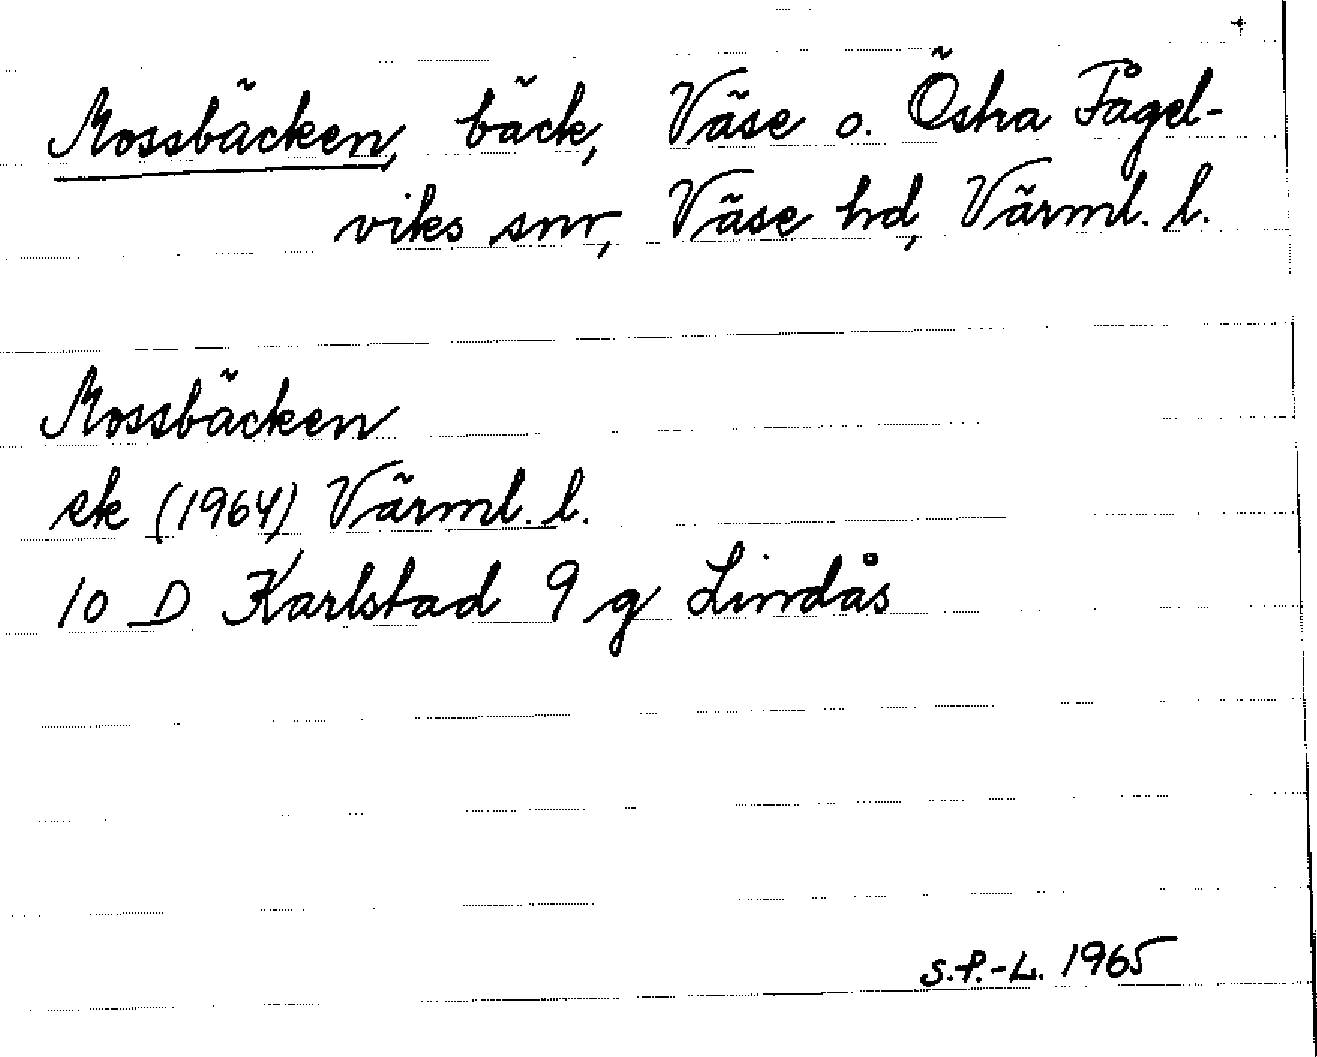 +
Mossbäcken, bäck, Väse o. Östra Fågel-
viks snr, Väse hd, Värml. l.
Mossbäcken
ek (1964) Värml. l.
10 D Karlstad 9 g Lindås
S.P.-L. 1965